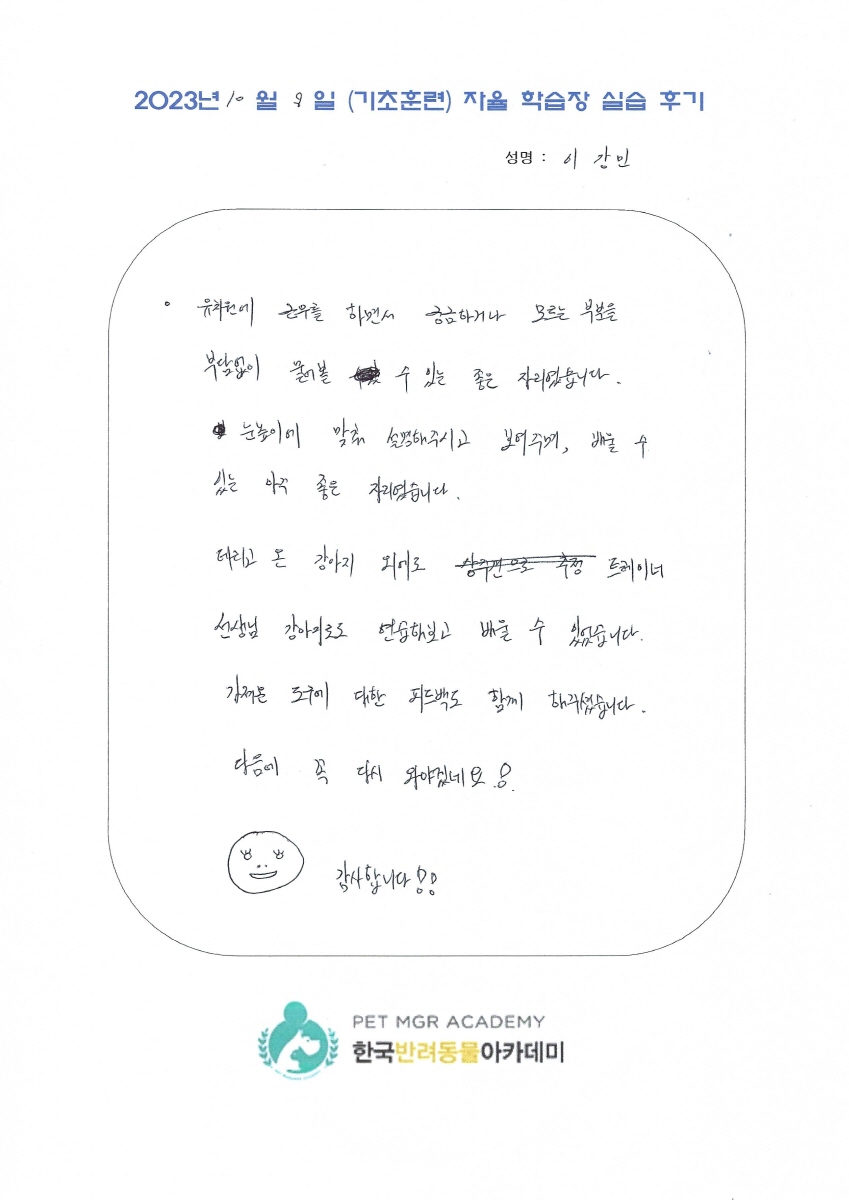 2023년 10 월 9 일 (기초훈련) 자율 학습장 실습 후기
성명 : 이 강민
유치원에 근무를 하면서 궁금하거나 모르는 부분을
부담없이 물어볼 수 있는 좋은 자리였습니다.
눈높이에 맞춰 설명해주시고 보여주며, 배울 수
있는 아주 좋은 자리였습니다.
데리고 온 강아지 외에도 트레이너
선생님 강아지로도 연습해보고 배울 수 있었습니다.
가져온 도구에 대한 피드백도 함께 해주셨습니다.
다음에 꼭 다시 와야겠네요!
감사합니다!!
PET MGR ACADEMY
한국반려동물아카데미